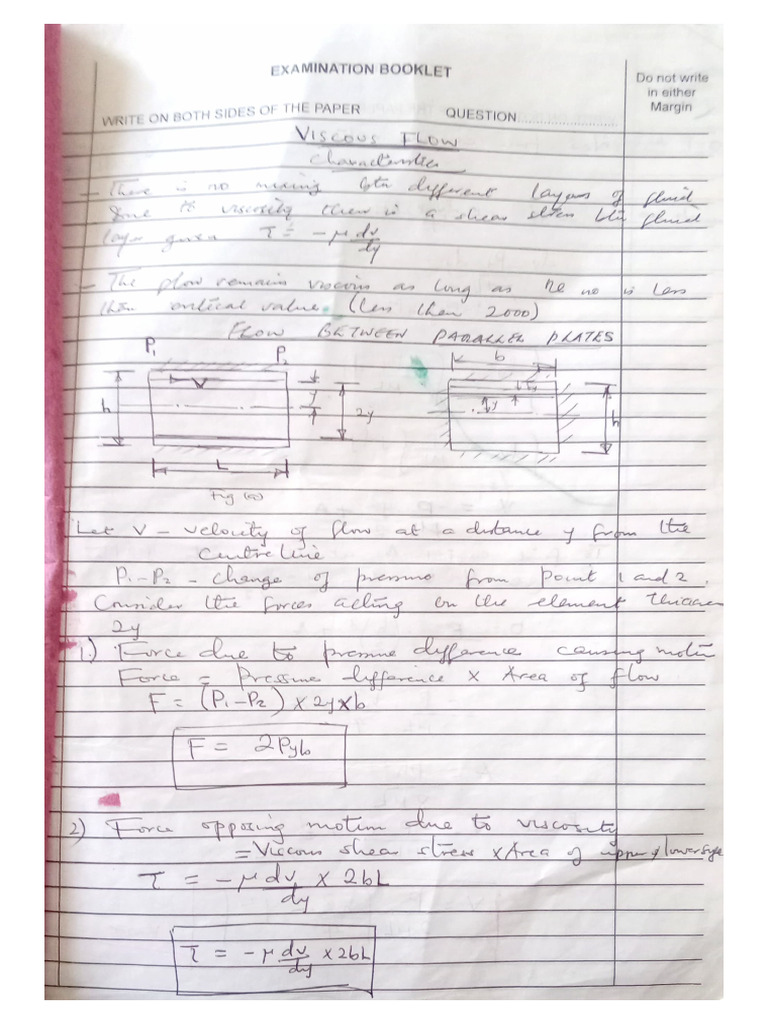 EXAMINATION BOOKLET
Do not write
in either
Margin
WRITE ON BOTH SIDES OF THE PAPER
QUESTION
VISCOUS FLOW
Characteristics
- There is no mixing btn different layers of fluid
Due to viscosity there is a shear stress btn fluid
layer given τ = -μ dv/dy
- The flow remains viscous as long as Re no is less
than critical value. (less than 2000)
FLOW BETWEEN PARALLEL PLATES
P1 P2 b
V y y
h 2y h
L
Fig (a)
Let V - velocity of flow at a distance y from the
centre line
P1-P2 - change of pressure from point 1 and 2.
Consider the forces acting on the element
2y
1) Force due to pressure difference causing motion
Force = Pressure difference × Area of flow
F = (P1-P2) × 2y×b
F = 2Pyb
2) Force opposing motion due to viscosity
= Viscous shear stress × Area of upper & lower
τ = -μ dv/dy × 2bL
τ = -μ dv/dy × 2bL